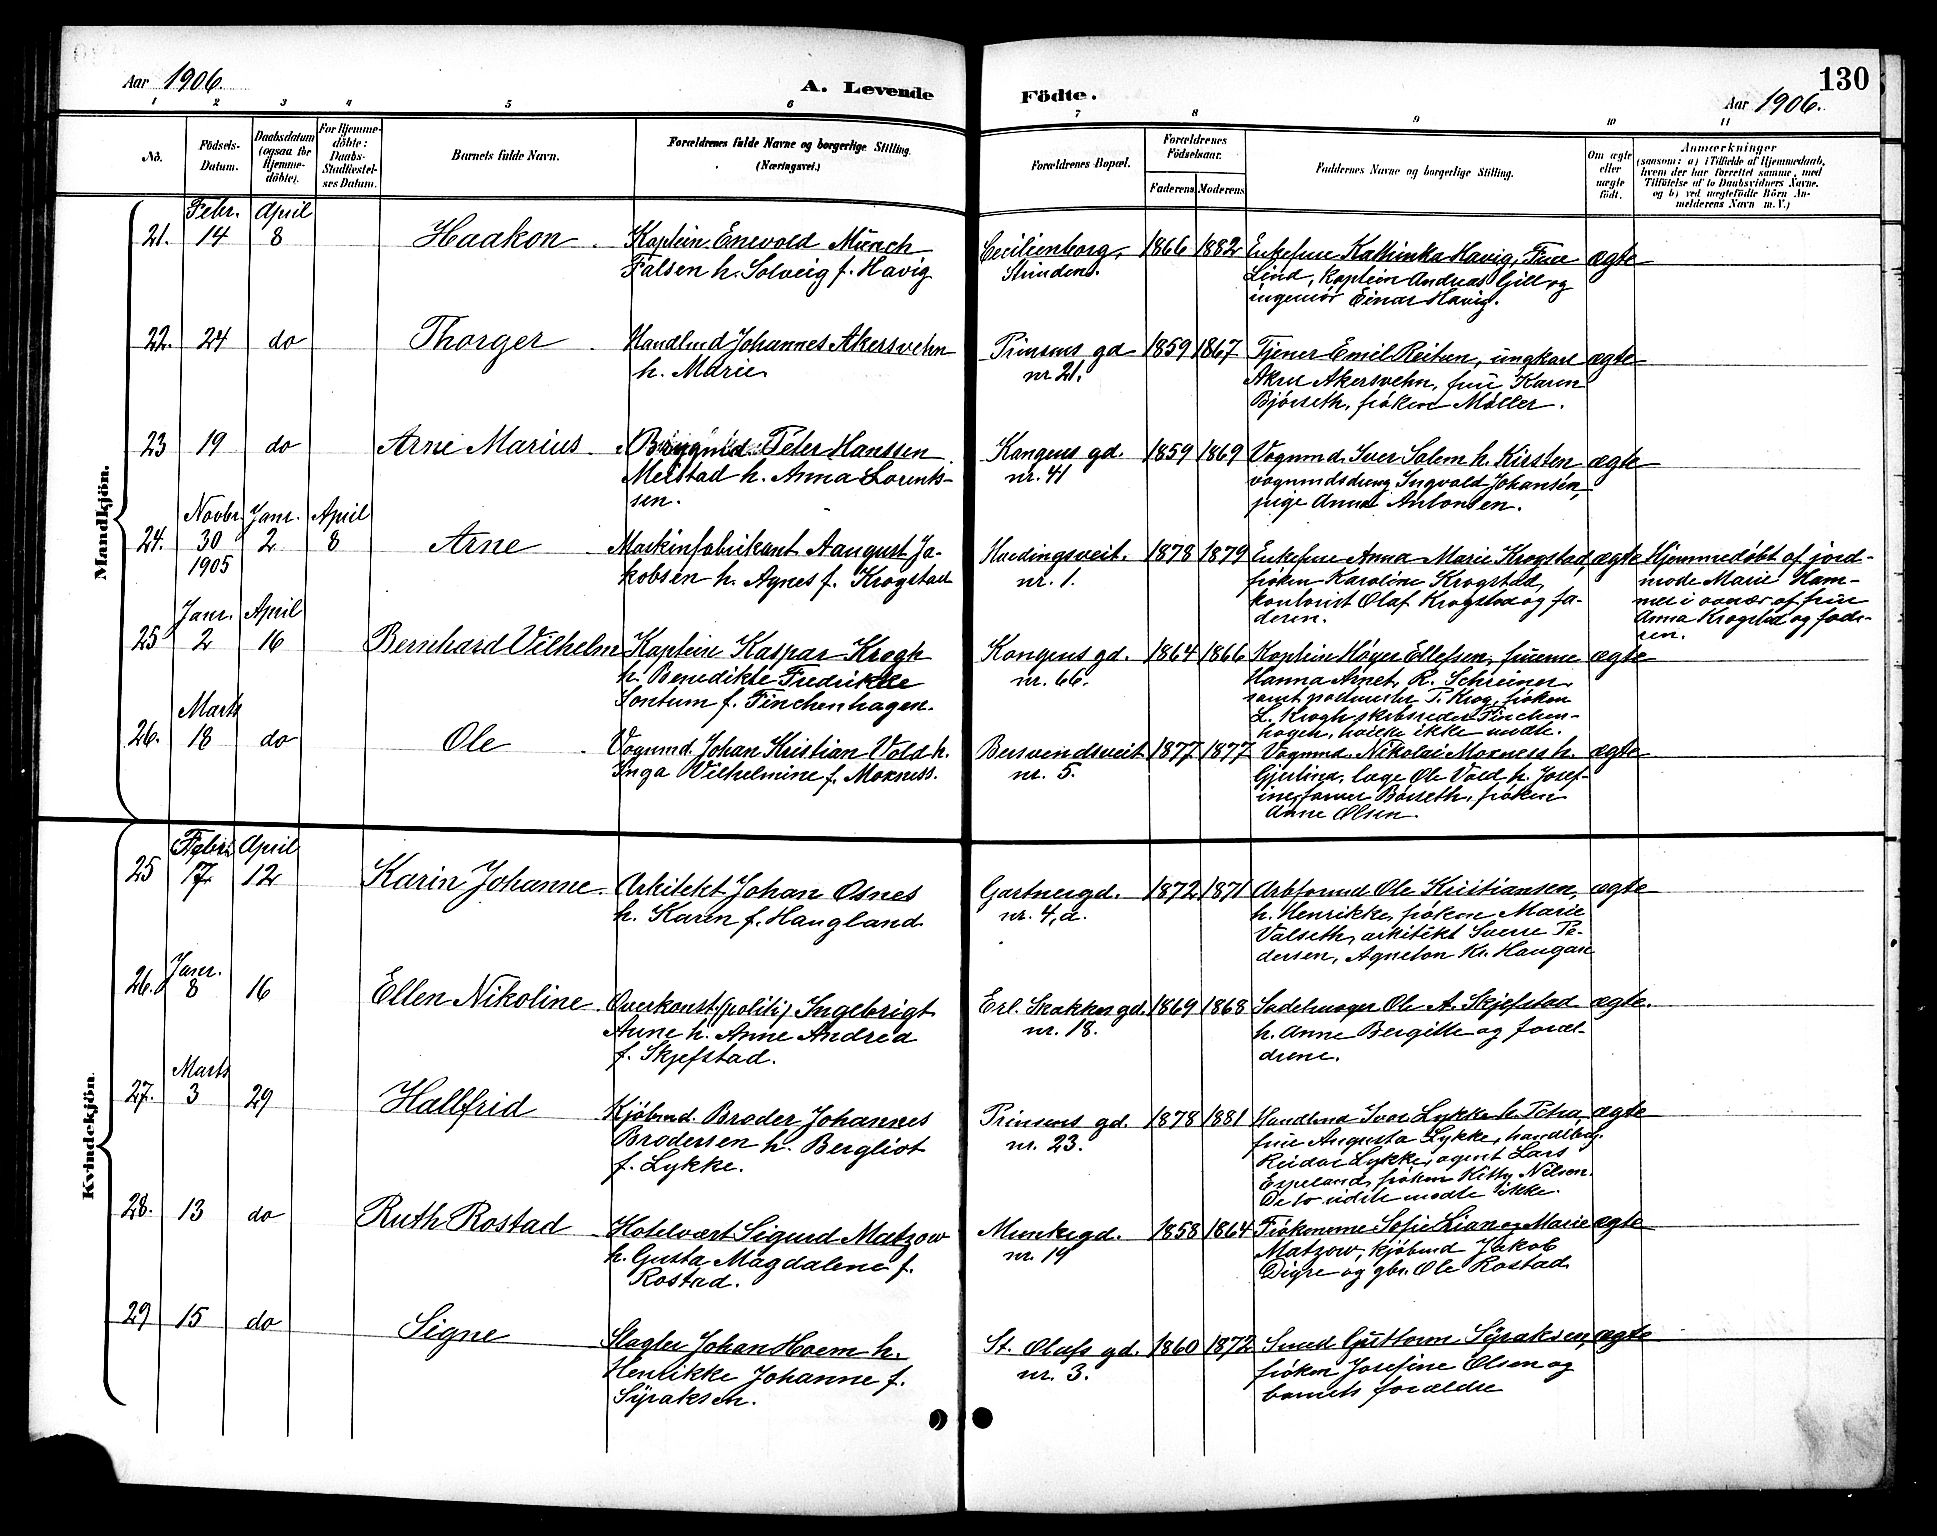 Aar 1906.
A. Levende
Födte.
130
Aar 1906.
1 2 3 4 5 6 7 8 9 10 11
No.
Födsels-
Datum.
Daabsdatum
(ogsaa for
Hjemme-
döbte).
For Hjemme-
döbte:
Daabs-
Stadfæstel-
ses Datum.
Barnets fulde Navn.
Forældrenes fulde Navne og borgerlige Stilling.
(Næringsvei.)
Forældrenes Bopæl.
Forældrenes
Födselsaar.
Faderens Moderens
Faddernes Navne og borgerlig Stilling.
Om ægte
eller
uægte
födt.
Anmærkninger
(saasom: a) i Tilfælde af Hjemmedaab,
hvem der har forrettet samme, med
Tilföielse af to Daabsvidners Navne.
og b) ved uægtefödte Börn An-
melderens Navn m. V.)
Mandkjön.
Febr. April
21. 14 8 Haakon Kaptein Enevold Münch
Falsen h. Solveig f. Havig
Cecilienborg,
Strinden.
1866 1882
Enkefrue Kathinka Havig, Frue
Lind, kaptein Andreas Gill og
ingeniør Einar Havig.
ægte
22. 24 do Thorger Handlmd Johannes Akersvehn
h. Marie
Prinsens gd
nr 21.
1859 1867
Tjener Emil Reitan, ungkarl
Aksel Akersvehn, frue Karen
Bjørseth, frøken Møller.
ægte
23 19 do Arne Marius Brygmd. Peter Hanssen
Melstad h. Anna Lorents-
sen.
Kongens gd.
nr. 41
1859 1869
Vognmd. Iver Solem h. Kirsten
vognmdsdreng Ingvald Johansen,
pige Anna Antonsen.
ægte
Novbr. Janr. April
24. 30 2 8 Arne Maskinfabrikant Aaugust Ja-
1905
kobsen h. Agnes f. Krogstad
Hardingsveit.
nr. 1.
1878 1879
Enkefrue Anna Marie Krogstad,
frøken Karoline Krogstad,
kontorist Olaf Krogstad og fa-
deren.
ægte
Hjemmedøbt af jord-
mode Marie Ham-
mer i overvær af frue
Anna Krogstad og fade-
ren.
Janr. April
25 2 16 Bernhard Vilhelm Kaptein Kaspar Krogh
h. Benedikte Fredrikke
Sontum f. Finchenhagen.
Kongens gd.
nr. 66.
1864 1866
Kaptein Høyer Ellefsen, fruerne
Hanna Arnet, R. Schreiner
samt postmester P. Krog, frøken
L. Krogh skibsreder Finchen-
hagen, hvilke ikke mødte.
ægte
Marts
26. 18 do Ole Vognmd. Johan Kristian Vold h.
Inga Wilhelmine f. Moxness.
Bersvendsveit
nr. 5.
1877 1877
Vognmd. Nikolai Moxness h.
Gjerlind, læge Ole Vold h. Josef-
ine, Børseth, frøken
Anne Olsen.
ægte
Kvindekjön.
Febr. April
25 17 12 Karin Johanne Arkitekt Johan Osnes
h. Karen f. Haugland
Gartnergd.
nr. 4, a.
1872 1871
Arbformd Ole Kristiansen,
h. Henrikke, frøken Marie
Valseth, arkitekt Sverre Pe-
dersen, Agneton Kr. Haugan
ægte
Janr.
26. 8 16 Ellen Nikoline Overkonst. (politi) Ingebrigt
Aune h. Anne Andrea
f. Skjefstad.
Erl. Skakkes gd.
nr. 18.
1869 1868
Sadelmager Ole A. Skjefstad
h. Anne Bergitte og foræl-
drene.
ægte.
Marts
27. 3 29 Hallfrid Kjøbmd. Broder Johannes
Brodersen h. Bergliot
f. Lykke.
Prinsens gd.
nr. 23.
1878 1881
Handlmd Ivar Lykke h. Petra,
frue Augusta Lykke, handlbog.
Reidar Lykke, agent Lars
Espeland, frøken Kitty Nilsen.
De to sidste mødte ikke.
ægte
28. 13 do Ruth Rostad Hotelvært Sigurd Matzow
h. Gusta Magdalene f.
Rostad.
Munkegd.
nr. 19
1858 1864
Frøknerne Sofie Lian og Marie
Matzow, kjøbmd Jakob
Digre og gbr. Ole Rostad
ægte
29 15 do Signe Slagter Johan Hoem h.
Henrikke Johanne f.
Syraksen.
St. Olafs gd.
nr. 3.
1860 1872
Smed Guttorm Syraksen,
frøken Josefine Olsen og
barnets forældre
ægte